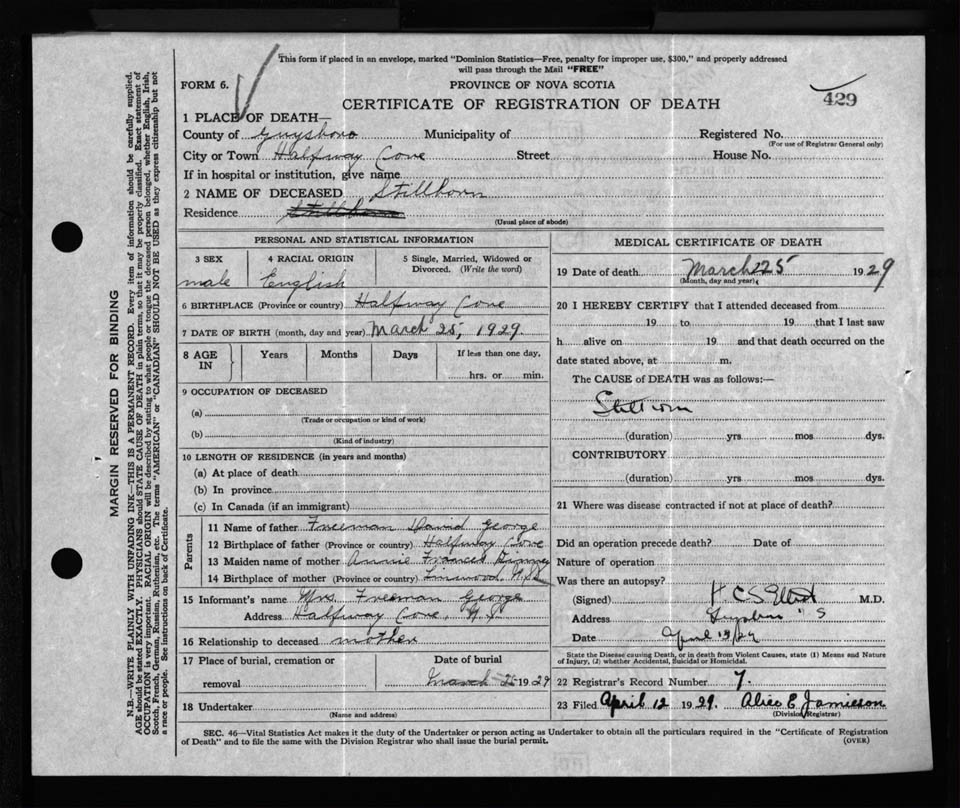 This form if placed in an envelope, marked "Dominion Statistics—Free, penalty for improper use, $300," and properly addressed
will pass through the Mail "FREE"
FORM 6.
PROVINCE OF NOVA SCOTIA
CERTIFICATE OF REGISTRATION OF DEATH
429
1 PLACE OF DEATH—
County of Guysboro Municipality of Registered No.
(For use of Registrar General only)
City or Town Halfway Cove Street House No.
If in hospital or institution, give name
2 NAME OF DECEASED Stillborn
Residence Stillborn
(Usual place of abode)
PERSONAL AND STATISTICAL INFORMATION
3 SEX 4 RACIAL ORIGIN 5 Single, Married, Widowed or
Divorced. (Write the word)
male English
6 BIRTHPLACE (Province or country) Halfway Cove
7 DATE OF BIRTH (month, day and year) March 25, 1929.
8 AGE IN Years Months Days If less than one day,
hrs. or min.
9 OCCUPATION OF DECEASED
(a)
(Trade or occupation or kind of work)
(b)
(Kind of industry)
10 LENGTH OF RESIDENCE (in years and months)
(a) At place of death
(b) In province
(c) In Canada (if an immigrant)
Parents
11 Name of father Freeman David George
12 Birthplace of father (Province or country) Halfway Cove
13 Maiden name of mother Annie Frances
14 Birthplace of mother (Province or country) Linwood, N.S.
15 Informant's name Mrs. Freeman George
Address Halfway Cove, N.S.
16 Relationship to deceased mother
17 Place of burial, cremation or Date of burial
removal March 25 1929
18 Undertaker
(Name and address)
MEDICAL CERTIFICATE OF DEATH
19 Date of death March 25 1929
(Month, day and year)
20 I HEREBY CERTIFY that I attended deceased from
19 to 19 , that I last saw
h alive on 19 and that death occurred on the
date stated above, at m.
The CAUSE of DEATH was as follows:—
Stillborn
(duration) yrs mos dys.
CONTRIBUTORY
(duration) yrs mos dys.
21 Where was disease contracted if not at place of death?
Did an operation precede death? Date of
Nature of operation
Was there an autopsy?
(Signed) M.D.
Address
Date April 13/29
State the Disease causing Death, or in death from Violent Causes, state (1) Means and Nature
of Injury, (2) whether Accidental, Suicidal or Homicidal.
22 Registrar's Record Number 7.
23 Filed April 12 1929. Alice E. Jamieson
(Division Registrar)
SEC. 46—Vital Statistics Act makes it the duty of the Undertaker or person acting as Undertaker to obtain all the particulars required in the "Certificate of Registration
of Death" and to file the same with the Division Registrar who shall issue the burial permit. (OVER)
MARGIN RESERVED FOR BINDING
N.B.—WRITE PLAINLY WITH UNFADING INK—THIS IS A PERMANENT RECORD. Every item of information should be carefully supplied.
AGE should be stated EXACTLY. PHYSICIANS should STATE CAUSE OF DEATH in plain terms, so that it may be properly classified. Exact statement of
OCCUPATION is very important. RACIAL ORIGIN will be described by stating to what people or tongue the deceased person belonged, whether English, Irish,
Scotch, French, German, Russian, Ruthenian, etc. The terms "AMERICAN" or "CANADIAN" SHOULD NOT BE USED as they express citizenship but not
a race or people. See instructions on back of Certificate.